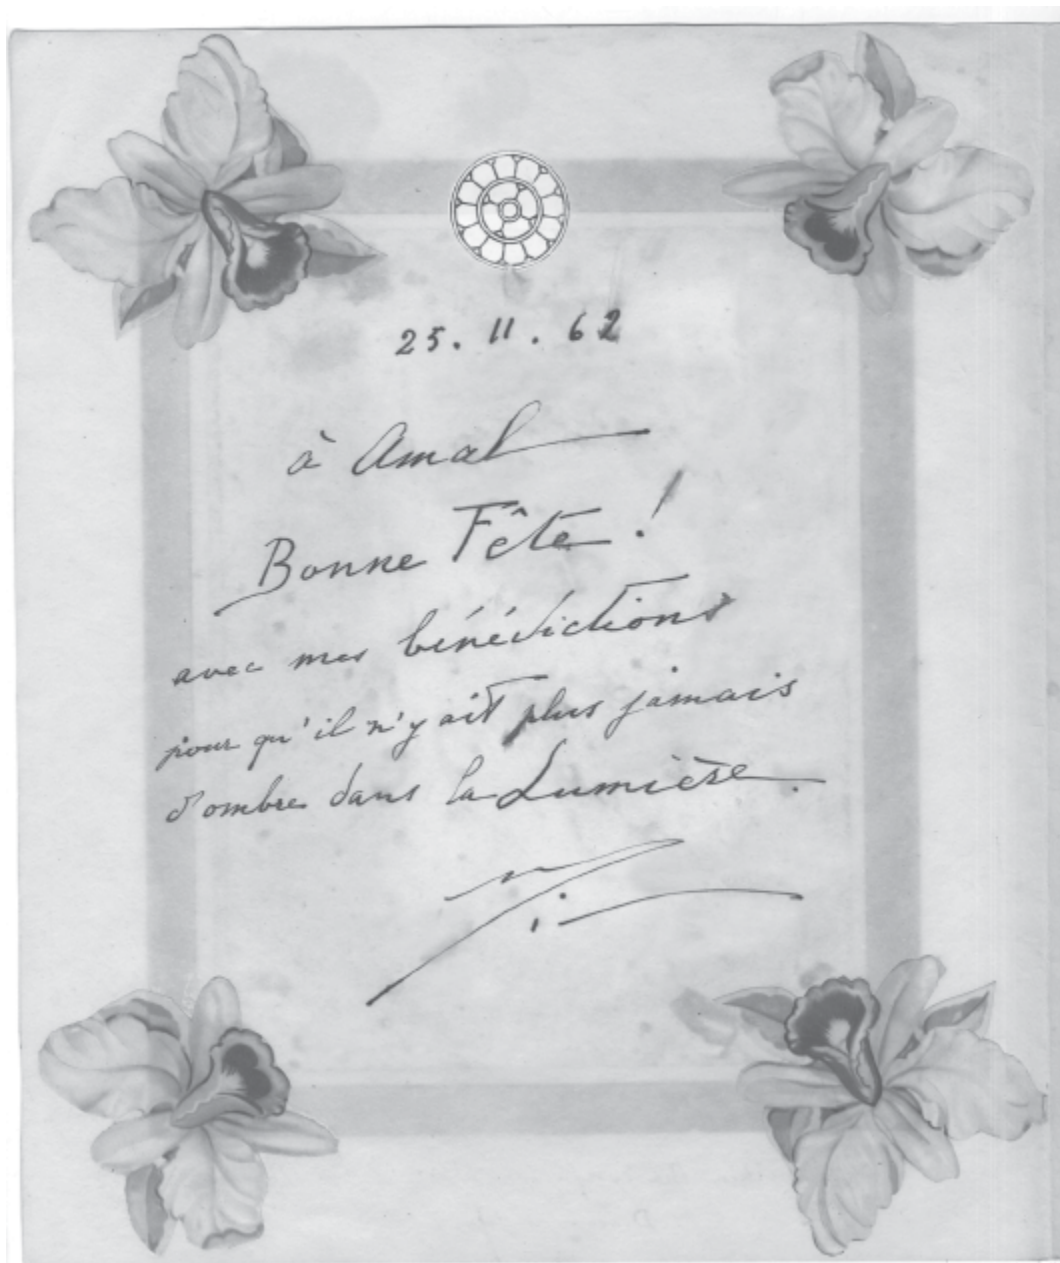 25.11.62
à Amal
Bonne Fête !
avec mes bénédictions
pour qu'il n'y ait plus jamais
d'ombre dans la Lumière.